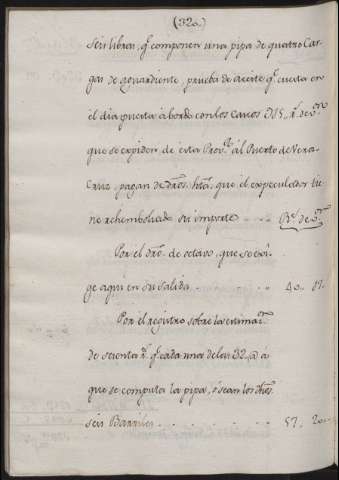 (320)
seis libras, q.e componen una pipa de quatro Car-
gas de aguardiente, prueba de aceite q.e cuesta en
el dia puesta à bordo con los Cascos 915 r.s de v.on
que se expiden de esta Prov.a al Puerto de Vera-
Cruz, pagan de dros. hta. que el expeculador tie-
ne rehembolsado su importe . . . R.s de v.on
Por el dro. de octavo, que se exi-
ge aqui en su salida . . . . . . 40. 17.
Por el registro sobre la estimac.on
de sesenta r.s q.e cada una de las 32 @ à
que se computa la pipa, ò sean los dhos.
seis Barriles . . . . . . . . 57. 20